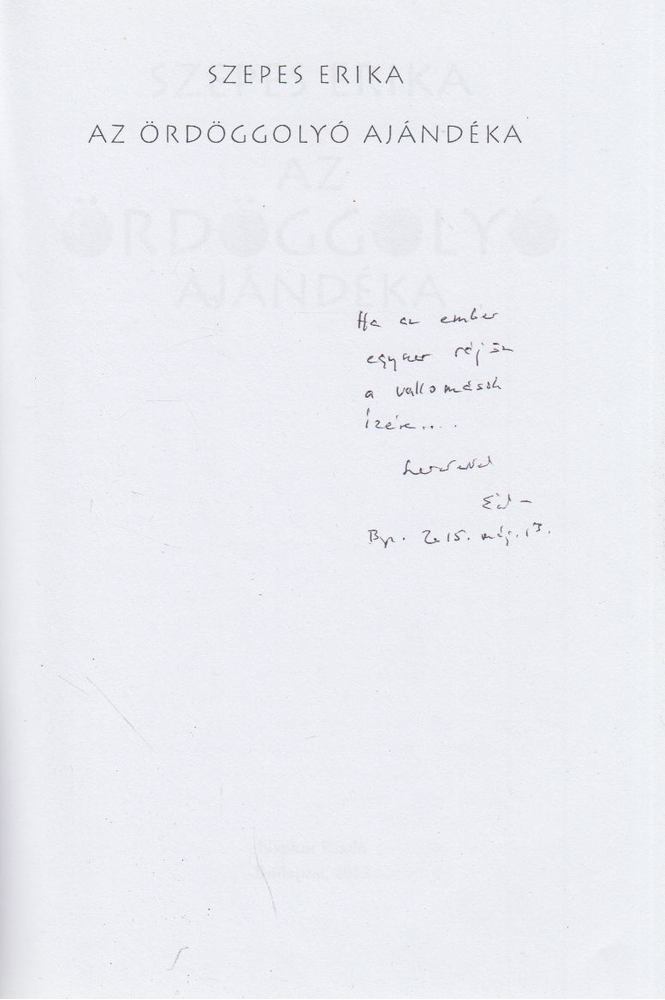 SZEPES ERIKA
AZ ÖRDÖGGOLYÓ AJÁNDÉKA
SZEPES ERIKA
AZ
ÖRDÖGGOLYÓ
AJÁNDÉKA
Ha az ember
egyszer rájön
a vallomások
ízére....
szeretettel
Bp. 2015. máj. 13.